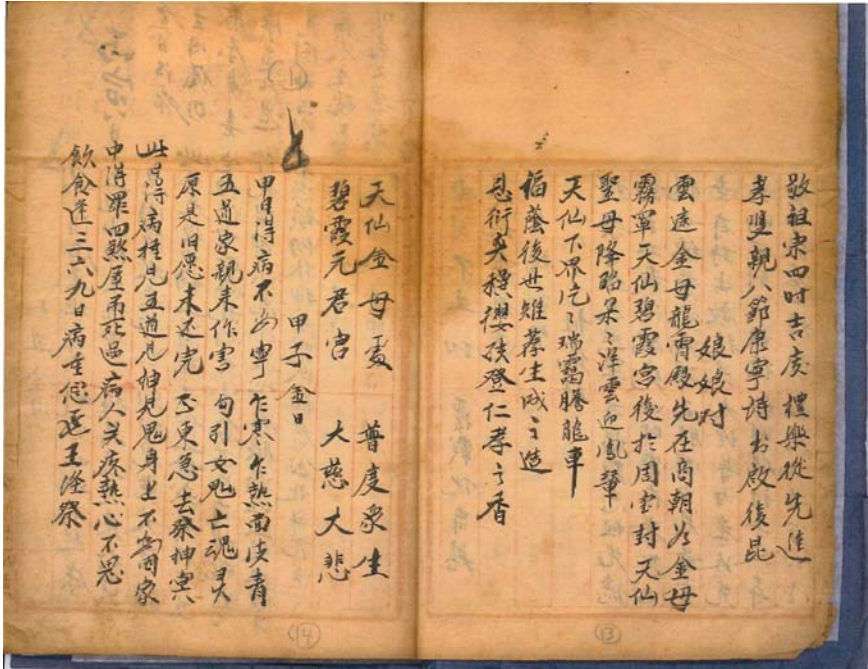 敬祖宗四时吉庆 禮樂從先進
孝双親八節康寧詩书啟後昆
娘娘对
雲遠金母龍霄殿先在商朝为金母
霧罩天仙碧霞宫後於周室封天仙
聖母降臨朵々洋雲迎鳳輦
天仙下界片々瑞靄騰龍車
福蔭後世雉荐生成之造
衍奕禩櫻孩登仁孝之香
13
天仙金母 普度众生
碧霞元君宫 大慈大悲
甲子金日
甲日得病不安寧乍寒乍热面皮青
五道家親来作害勾引女鬼亡魂灵
原是旧愿未还完正東急去祭神灵
此日得病撞見五道見神見鬼身上不安因家
中得罪四煞屋吊死過病人头疼热心不思
飲食逢三六九日病重
14